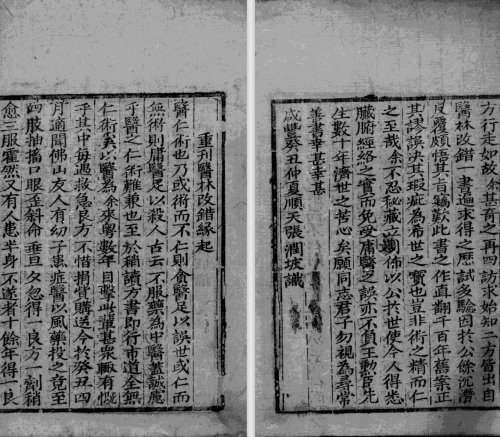 重刊醫林改錯緣起
醫仁術也乃或術而不仁則貪醫足以誤世或仁而
無術則庸醫足以殺人古云不服藥為中醫蓋誠慮
乎醫之仁術難兼也至於稍讀方書即行市道全無
仁術奚以醫為余來粵數年目擊此輩甚衆輒有慨
乎其中每遇救急良方不惜捐貲購送今於癸丑四
月適聞佛山友人有幼子患症醫以風藥投之竟至
四肢抽搐口眼歪斜命垂旦夕忽得一良方一劑稍
愈三服霍然又有人患半身不遂者十餘年得一良
方行走如故余甚奇之再四訪求始知二方皆出自
醫林改錯一書遍求得之歷試多驗因於公餘沉潛
反覆頗悟其旨竊歎此書之作直翻千百年舊案正
其謬誤決其瑕疵為希世之寶也豈非術之精而仁
之至哉余不忍秘藏立刻佈以公於世使今人得悉
臟腑經絡之實而免受庸醫之誤亦不負王勳臣先
生數十年濟世之苦心矣願同志君子勿視為尋常
善書幸甚幸甚
咸豐癸丑仲夏順天張潤坡識